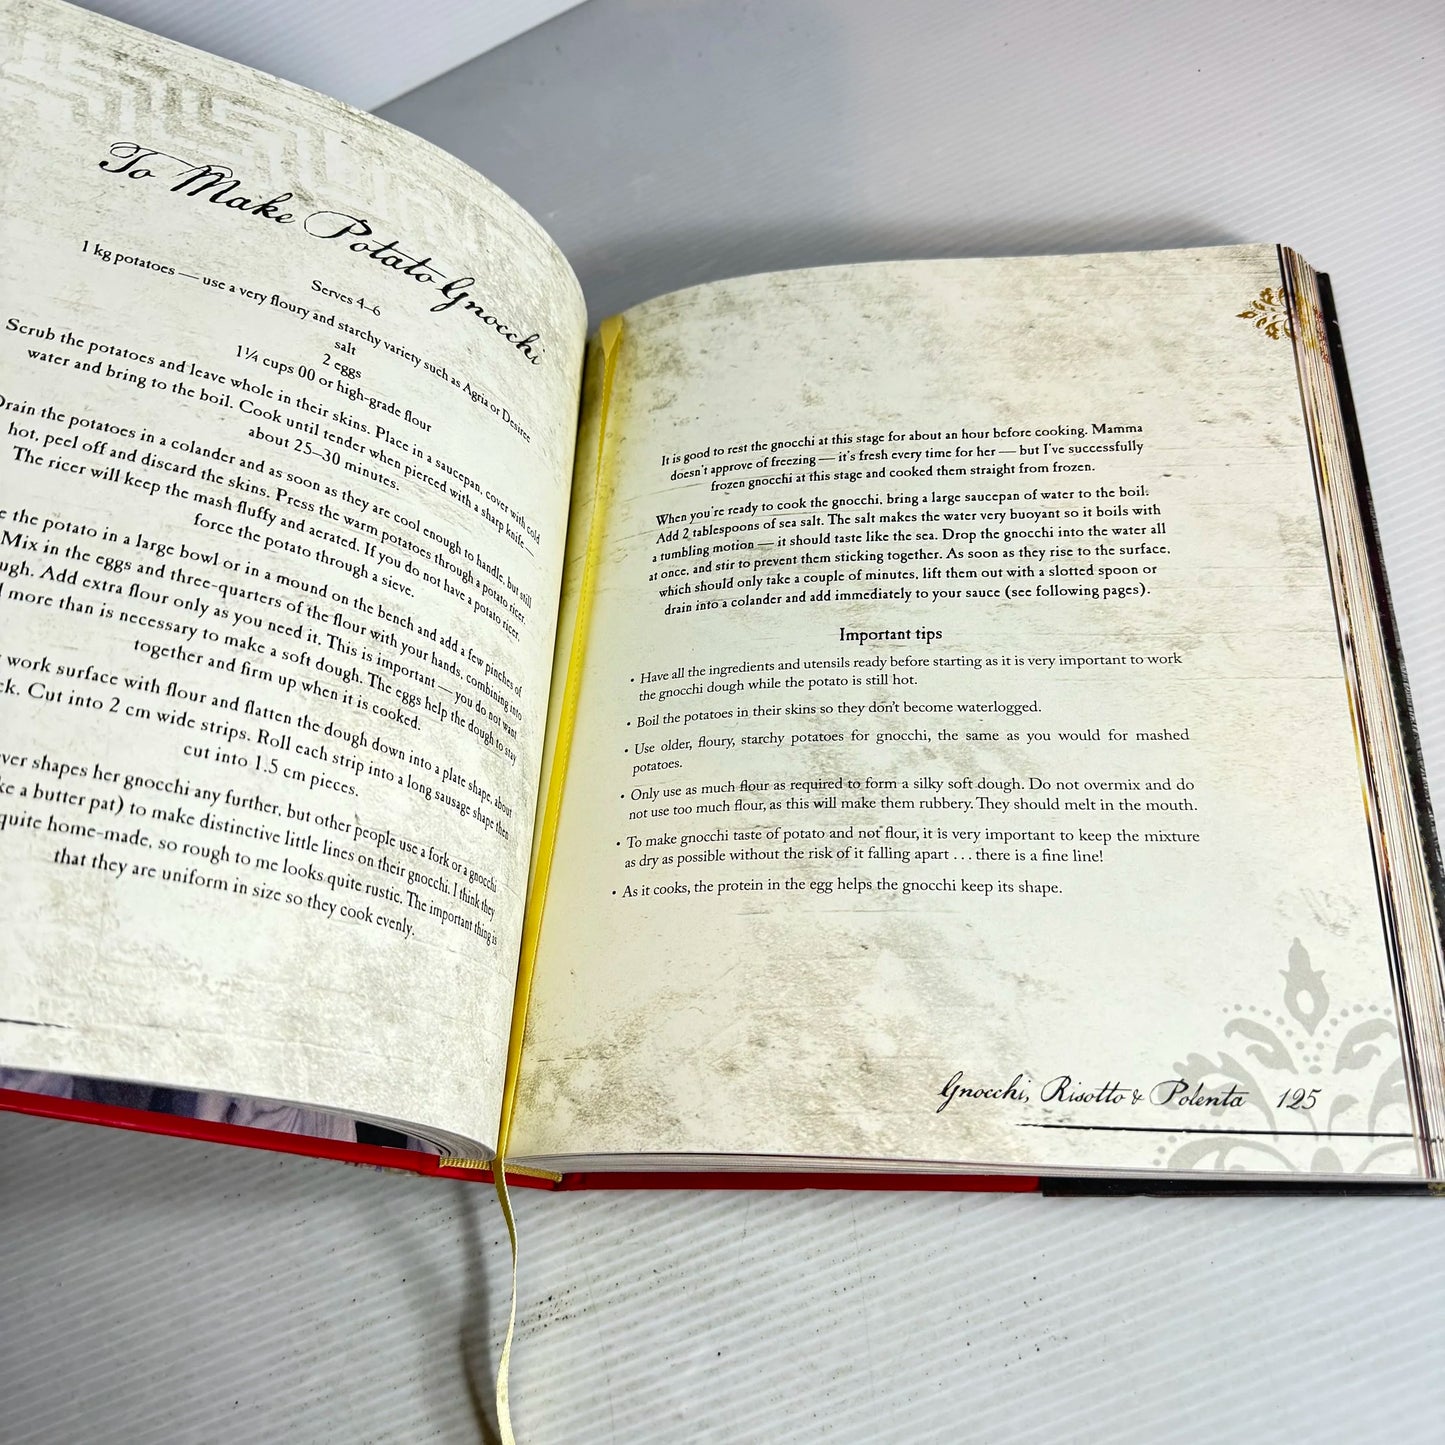 To Make Potato Gnocchi
Serves 4–6
1 kg potatoes — use a very floury and starchy variety such as Agria or Desiree
salt
2 eggs
1¼ cups 00 or high-grade flour
Scrub the potatoes and leave whole in their skins. Place in a saucepan, cover with cold
water and bring to the boil. Cook until tender when pierced with a sharp knife —
about 25–30 minutes.
Drain the potatoes in a colander and as soon as they are cool enough to handle, but still
hot, peel off and discard the skins. Press the warm potatoes through a potato ricer.
The ricer will keep the mash fluffy and aerated. If you do not have a potato ricer,
force the potato through a sieve.
the potato in a large bowl or in a mound on the bench and add a few pinches of
Mix in the eggs and three-quarters of the flour with your hands, combining into
Add extra flour only as you need it. This is important — you do not want
more than is necessary to make a soft dough. The eggs help the dough to stay
together and firm up when it is cooked.
work surface with flour and flatten the dough down into a plate shape, about
Cut into 2 cm wide strips. Roll each strip into a long sausage shape then
cut into 1.5 cm pieces.
shapes her gnocchi any further, but other people use a fork or a gnocchi
a butter pat) to make distinctive little lines on their gnocchi. I think they
quite home-made, so rough to me looks quite rustic. The important thing is
that they are uniform in size so they cook evenly.
It is good to rest the gnocchi at this stage for about an hour before cooking. Mamma
doesn't approve of freezing — it's fresh every time for her — but I've successfully
frozen gnocchi at this stage and cooked them straight from frozen.
When you're ready to cook the gnocchi, bring a large saucepan of water to the boil.
Add 2 tablespoons of sea salt. The salt makes the water very buoyant so it boils with
a tumbling motion — it should taste like the sea. Drop the gnocchi into the water all
at once, and stir to prevent them sticking together. As soon as they rise to the surface,
which should only take a couple of minutes, lift them out with a slotted spoon or
drain into a colander and add immediately to your sauce (see following pages).
Important tips
• Have all the ingredients and utensils ready before starting as it is very important to work
the gnocchi dough while the potato is still hot.
• Boil the potatoes in their skins so they don't become waterlogged.
• Use older, floury, starchy potatoes for gnocchi, the same as you would for mashed
potatoes.
• Only use as much flour as required to form a silky soft dough. Do not overmix and do
not use too much flour, as this will make them rubbery. They should melt in the mouth.
• To make gnocchi taste of potato and not flour, it is very important to keep the mixture
as dry as possible without the risk of it falling apart . . . there is a fine line!
• As it cooks, the protein in the egg helps the gnocchi keep its shape.
Gnocchi, Risotto & Polenta 125